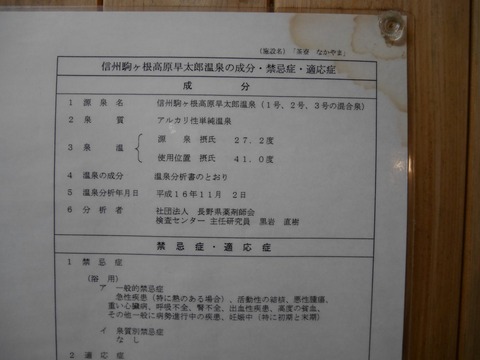 （施設名）「茶壷 なかやま」
信州駒ヶ根高原早太郎温泉の成分・禁忌症・適応症
成 分
1 源泉名 信州駒ヶ根高原早太郎温泉（1号、2号、3号の混合泉）
2 泉質 アルカリ性単純温泉
3 泉温 源泉 摂氏 27.2度
使用位置 摂氏 41.0度
4 温泉の成分 温泉分析書のとおり
5 温泉分析年月日 平成16年11月 2日
6 分析者 社団法人 長野県薬剤師会
検査センター 主任研究員 黒岩 直樹
禁忌症・適応症
1 禁忌症
（浴用）
ア 一般的禁忌症
急性疾患（特に熱のある場合）、活動性の結核、悪性腫瘍、
重い心臓病、呼吸不全、腎不全、出血性疾患、高度の貧血、
その他一般に病勢進行中の疾患、妊娠中（特に初期と末期）
イ 泉質別禁忌症
なし
2 適応症